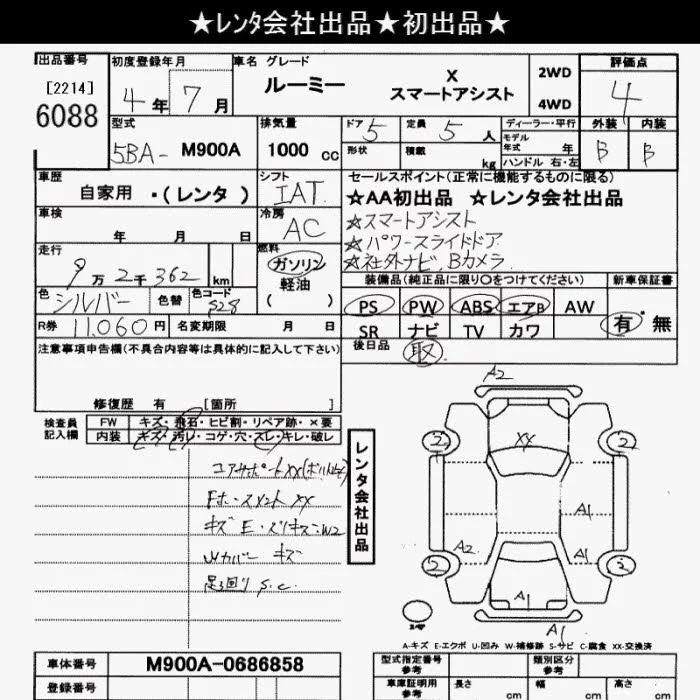 ★レンタ会社出品★初出品★
出品番号 初度登録年月 車名 グレード 評価点
[2214]
6088
4年 7月
ルーミー X
スマートアシスト
2WD
4WD
4
型式 排気量 ドア 5 定員 5人 ディーラー・平行 外装 内装
5BA- M900A 1000 cc
形状 積載 kg
モデル年式 年
ハンドル 右・左
B B
車歴 シフト セールスポイント(正常に機能するものに限る)
自家用 ・(レンタ) IAT
★AA初出品 ★レンタ会社出品
車検 冷房
年 月 日 AC
☆スマートアシスト
☆パワースライドドア
☆社外ナビ、Bカメラ
走行 燃料
9万2千362 km
ガソリン
軽油
( )
装備品(純正品に限り○をつけてください) 新車保証書
色 シルバー 色替 色コード S28
PS PW ABS エアB AW
SR ナビ TV カワ
有・無
R券 11,060円 名変期限 月 日
後日品 取
注意事項申告欄(不具合内容等は具体的に記入して下さい)
修復歴 有 [箇所
検査員
記入欄
FW キズ・飛石・ヒビ割・リペア跡・×要
内装 キズ・汚レ・コゲ・穴・スレ・キレ・破レ
コアサポートXX(ボルト
XX
キズ
カバー キズ
足廻り S.C
レンタ会社出品
A2
XX
2 2
A1
A2 A1
2 2
A1
A1
A-キズ E-エクボ U-凹み W-補修跡 S-サビ C-腐食 XX-交換済
車体番号 M900A-0686858
登録番号
型式指定番号
参考
類別区分
参考
車庫証明用
参考
長さ cm 幅 cm 高さ cm